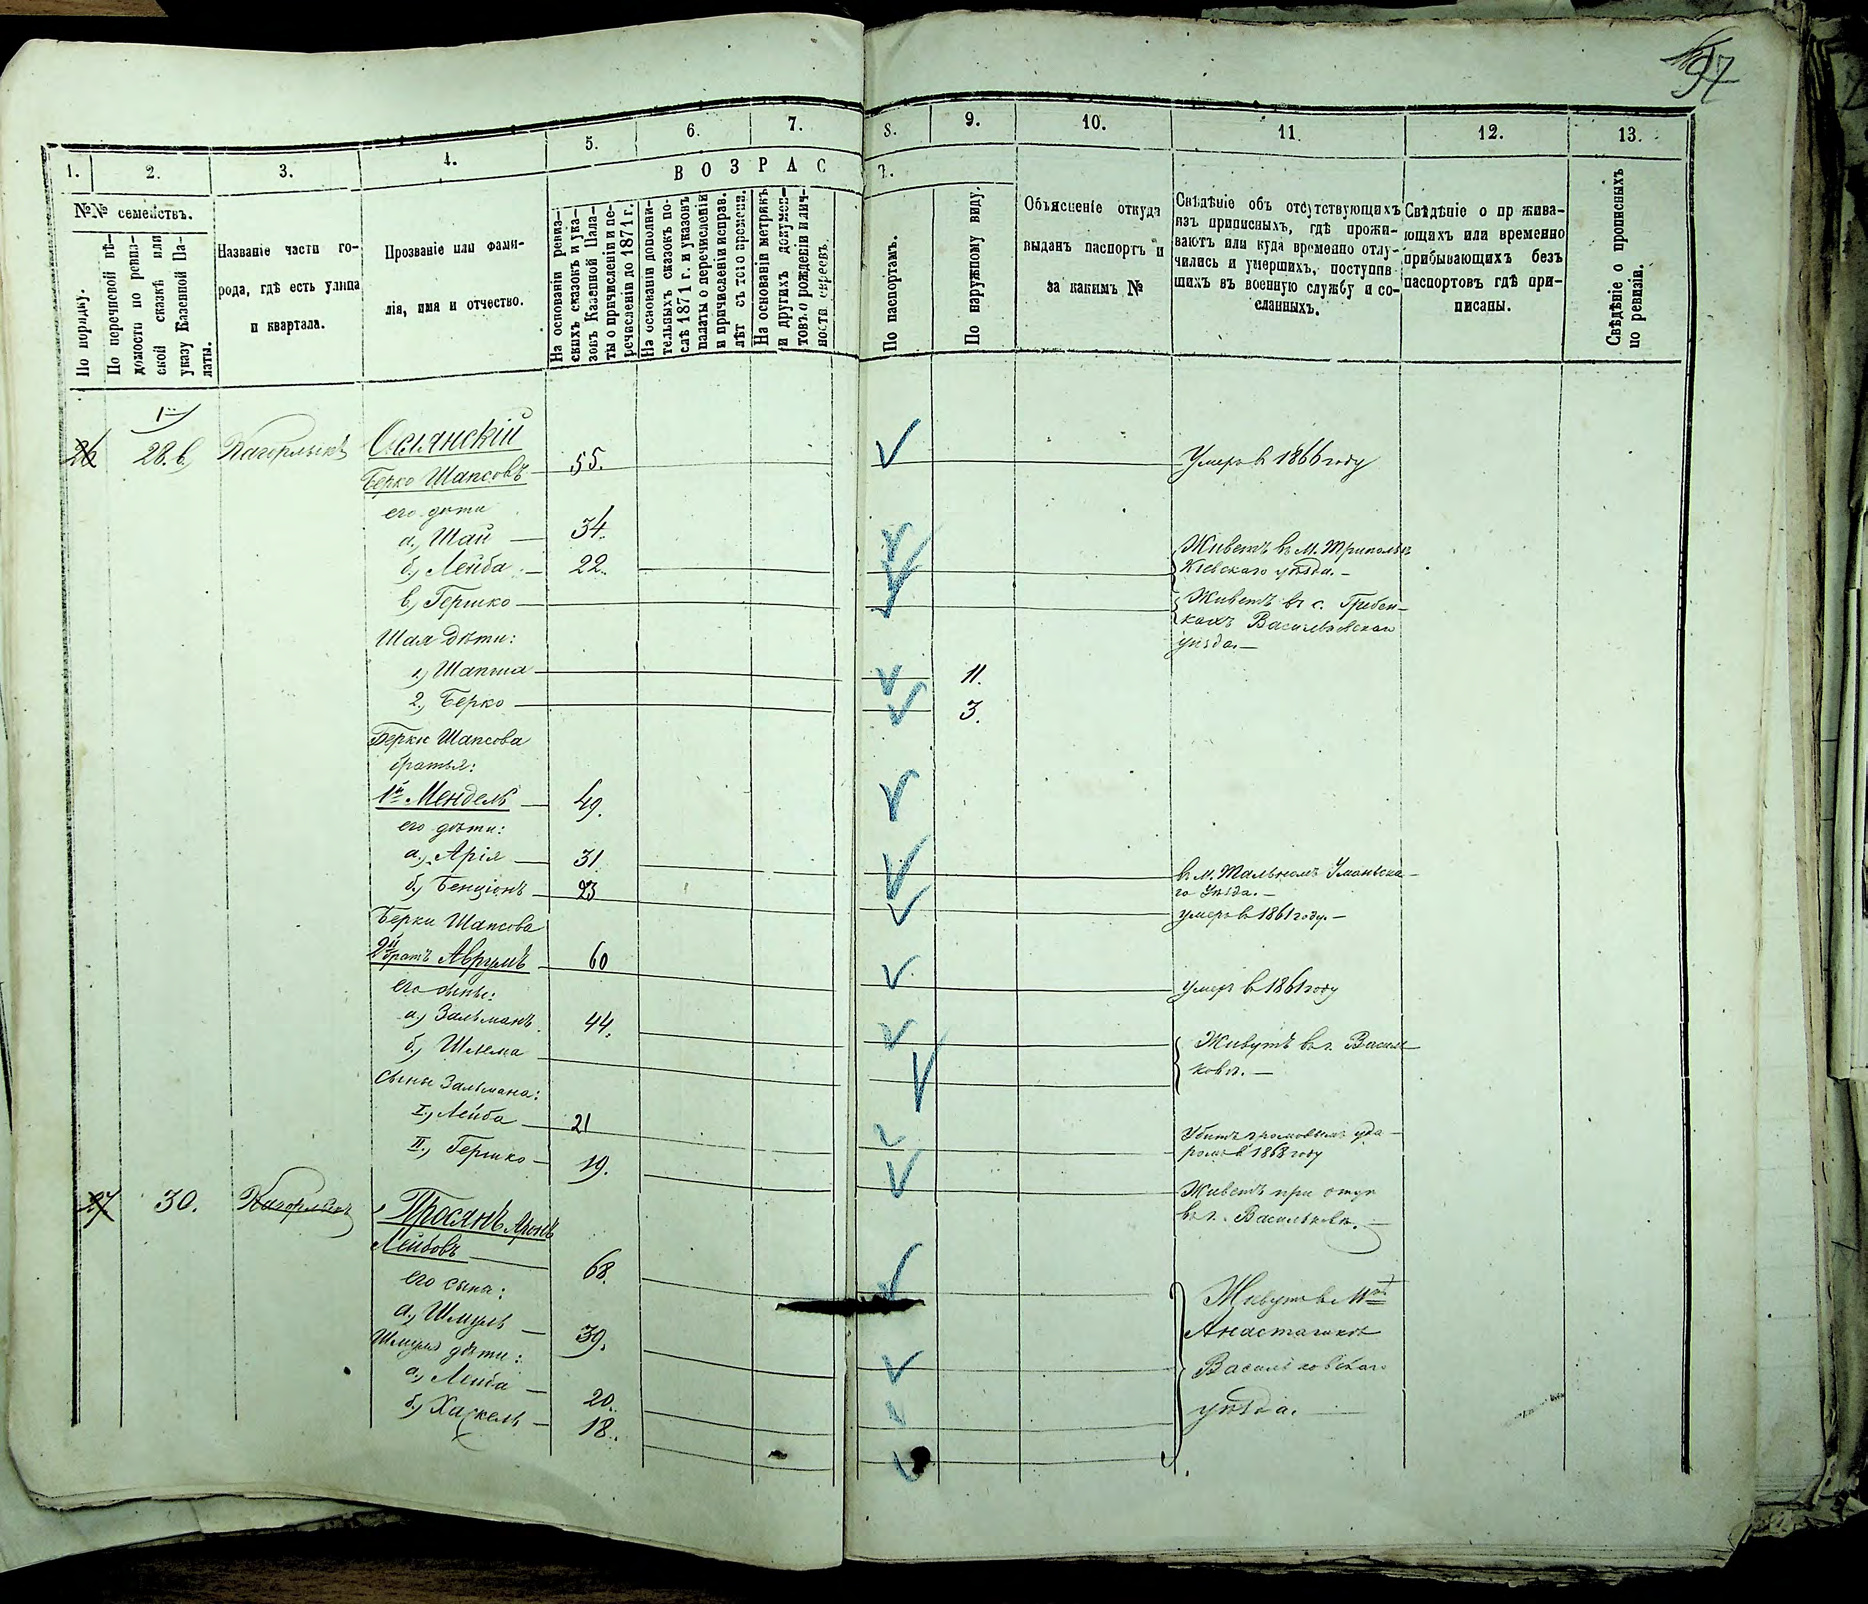 97
1.
2.
3.
4.
5.
6.
7.
8.
9.
10.
11.
12.
13.
№№ семействъ.
ВОЗРАС
Т.
По порядку.
По перечневой вѣ-
домости по ревиз-
ской сказкѣ или
указу Казенной Па-
латы.
Названіе части го-
рода, гдѣ есть улица
и квартала.
Прозваніе или фами-
лія, имя и отчество.
На основаніи ревиз-
скихъ сказокъ и ука-
зовъ Казенной Пала-
ты о причисленіи и пе-
речисленіи до 1871 г.
На основаніи дополни-
тельныхъ сказокъ по-
слѣ 1871 г. и указовъ
палаты о перечисленіи
и причисленіи исправ.
лѣт съ того времени.
На основаніи метрикъ
и другихъ докумен-
товъ о рожденіи и лич-
ности евреевъ.
По паспортамъ.
По наружному виду.
Объясненіе откуда
выданъ паспортъ и
за какимъ №
Свѣдѣніе объ отсутствующихъ
изъ приписныхъ, гдѣ прожи-
ваютъ или куда временно отлу-
чились и умершихъ, поступив-
шихъ въ военную службу и со-
сланныхъ.
Свѣдѣніе о прожива-
ющихъ или временно
прибывающихъ безъ
паспортовъ гдѣ при-
писаны.
Свѣдѣніе о прописныхъ
по ревизіи.
26 28.в. Кагорлыкъ Ослянскій
Берко Шапсовъ 55. Умеръ в 1866 году
его дѣти
а., Шаи 34. Живетъ въ м. Триполь
б., Лейба 22. Кіевскаго уѣзда.
в., Гершко Живетъ въ с. Гребен-
кахъ Васильковскаго
уѣзда.
Шая дѣти:
1., Шапша 11.
2., Берко 3.
Берки Шапсова
братья:
1й Мендель 49.
его дѣти:
а., Арія 31. въ м. Тальномъ Уманьска-
го Уѣзда.
б., Бенціонъ 23 умеръ в 1861 году.
Берки Шапсова
2й братъ Аврумъ 60 умеръ в 1861 году
его сыны:
а., Зальманъ 44. Живутъ въ г. Василь-
б., Шлема ковѣ.
Сыны Зальмана:
I., Лейба 21 Убитъ громовымъ уда-
ромъ в 1868 году
II., Гершко 19. Живетъ при отцѣ
въ г. Васильковѣ.
27. 30. Кагорлыкъ Просянъ Аронъ
Лейбовъ 68.
его сына: Живутъ в Мѣ
а., Шмуль 39. Анастасиевкѣ
Шмуля дѣти: Васильковскаго
а., Лейба 20. уѣзда.
б., Хаскель 18.